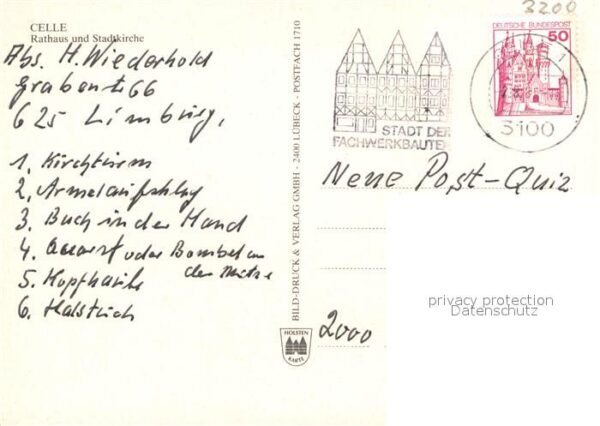 CELLE
Rathaus und Stadtkirche
Abs. H. Wiederhold
Grabenstr 66
625 Limburg,
1. Kirchturm
2. Armelaufschlag
3. Buch in der Hand
4. Quast oder Bombel an
der Mütze
5. Kopfhaube
6. Halstuch
BILD-DRUCK & VERLAG GMBH · 2400 LÜBECK · POSTFACH 1710
HOLSTEN
KARTE
3200
DEUTSCHE BUNDESPOST
50
STADT DER
FACHWERKBAUTEN
3100
Neue Post-Quiz
2000
privacy protection
Datenschutz